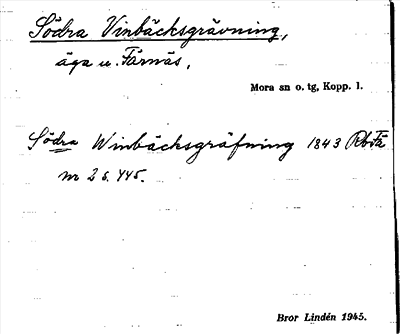 Södra Vinbäcksgrävning,
äga u. Färnäs,
Mora sn o. tg, Kopp. l.
Södra Winbäcksgräfning 1843 Rb Fä
nr 2 s. 445.
Bror Lindén 1945.